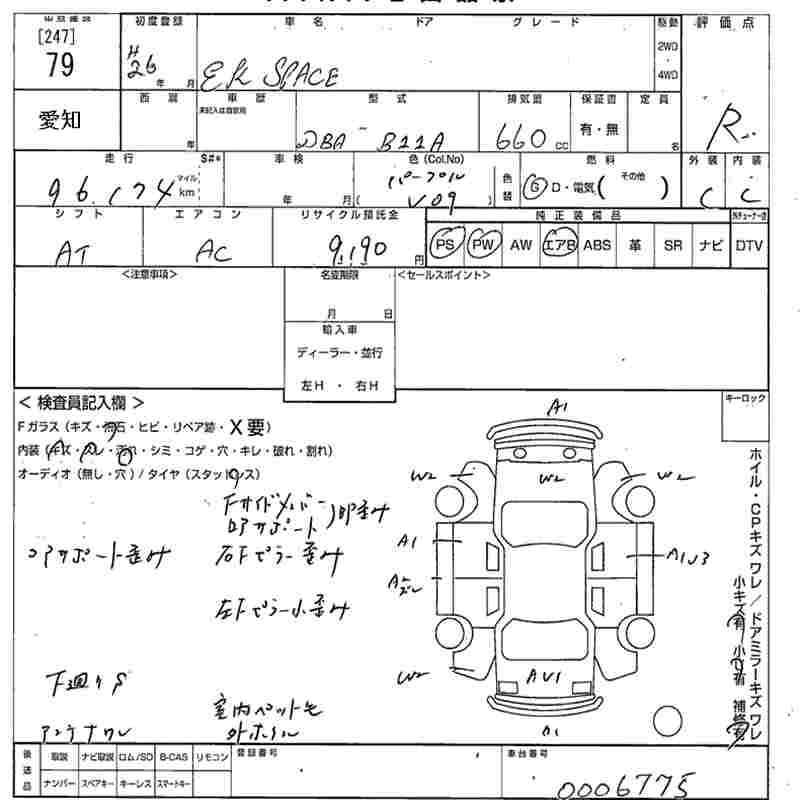 [247]
79
愛知
初度登録
H
26
年 月
車名 ドア グレード
EK SPACE
駆動
2WD
・
4WD
評価点
R
西暦
年
車歴
未記入は自家用
型式
DBA - B11A
排気量
660 CC
保証書
有・無
定員
名
走行 $#*
96,174 マイル km
車検
年 月
色(Col.No)
パープル
( V09 )
色替
燃料
G D・電気( その他 )
外装 内装
C C
シフト
AT
エアコン
AC
リサイクル預託金
9,190 円
純正装備品
PS PW AW エアB ABS 革 SR ナビ
DTV
<注意事項>
名変期限
月 日
輸入車
ディーラー・並行
左H ・ 右H
<セールスポイント>
< 検査員記入欄 >
キーロック
Fガラス(キズ・飛石・ヒビ・リペア跡・X要)
内装(キズ・スレ・汚れ・シミ・コゲ・穴・キレ・破れ・割れ)
オーディオ(無し・穴)/タイヤ(スタッドレス)
Fサイドメンバー
コアサポート
コアサポート歪み
右Fピラー歪み
左Fピラー小歪み
下廻りS
アンテナワレ
室内ペット毛
外ホイル
A1
W2 W2 W2
A1 A1U3
A
ズレ
W2 AU1
A1
ホイル・CPキズ ワレ/ドアミラーキズ ワレ
小キズ有 小凹有 補修有
後送品
取説 ナビ取説 ロム/SD B-CAS リモコン
ナンバー スペアキー キーレス スマートキー
登録番号
車台番号
0006775